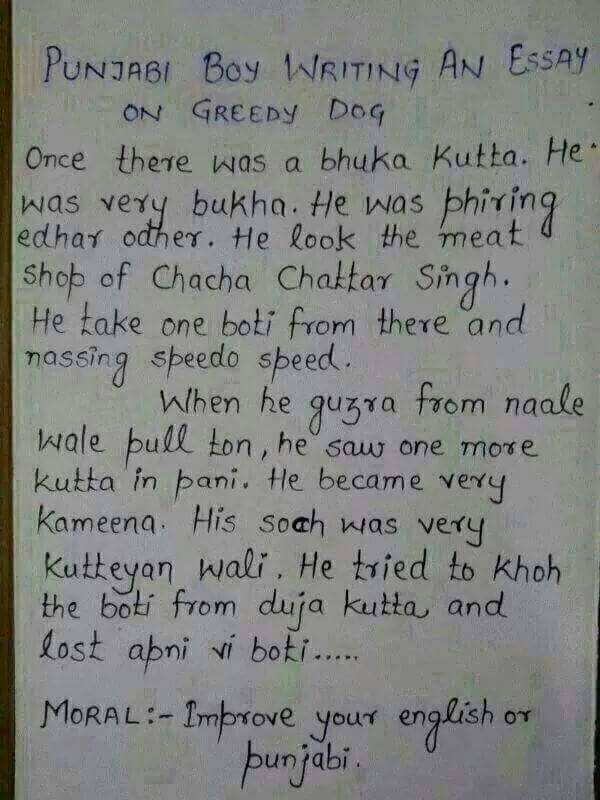 PUNJABI BOY WRITING AN ESSAY
ON GREEDY DOG
Once there was a bhuka Kutta. He
was very bukha. He was phiring
edhar odher. He look the meat
shop of Chacha Chattar Singh.
He take one boti from there and
nassing speedo speed.
When he guzra from naale
wale pull ton, he saw one more
kutta in pani. He became very
Kameena. His soch was very
Kutteyan wali. He tried to Khoh
the boti from duja kutta and
lost apni vi boti.....
MORAL:- Improve your english or
punjabi.